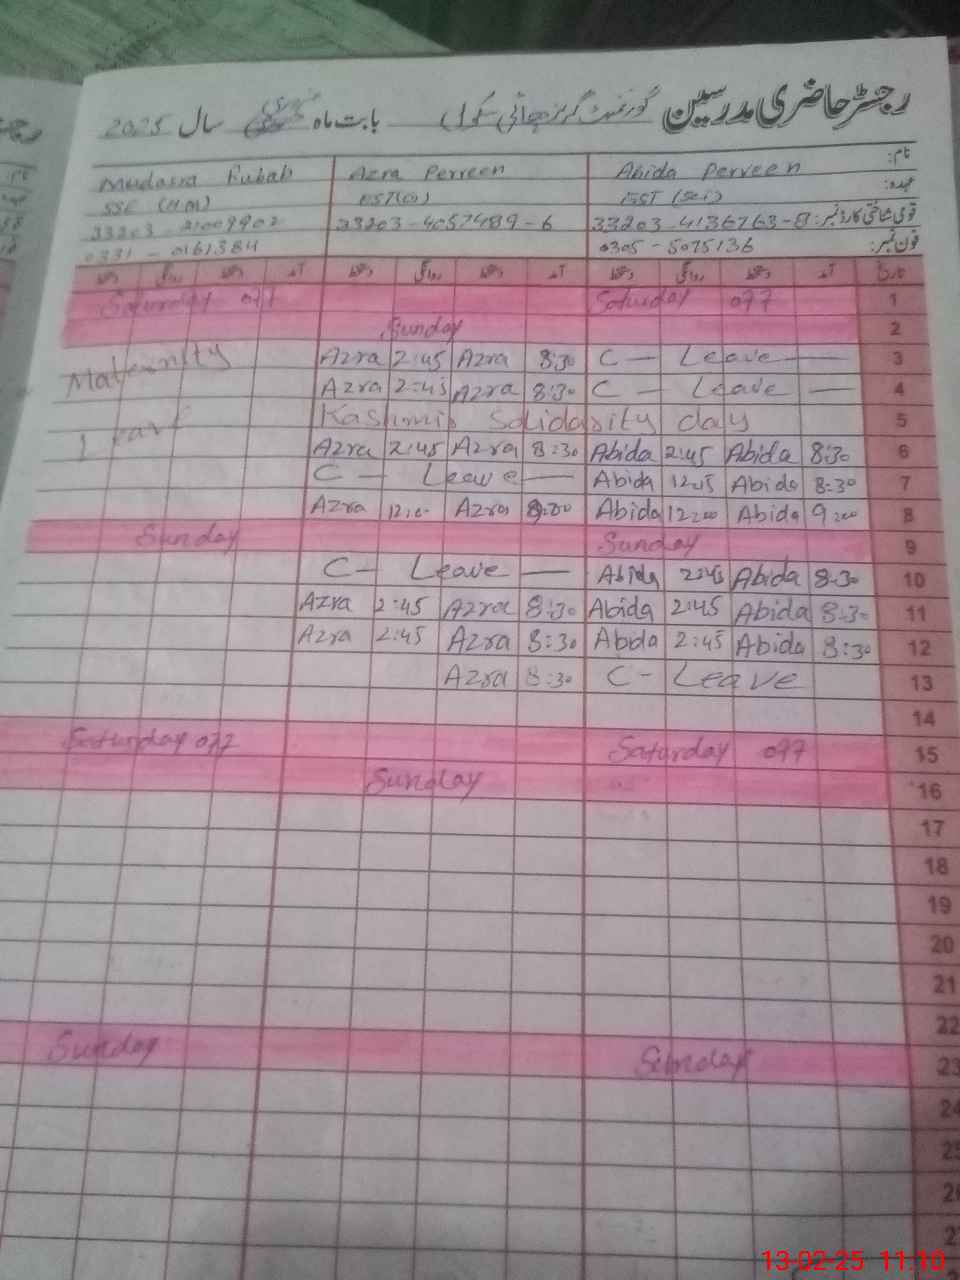 رجسٹر حاضری مدرسین گورنمنٹ گرلز ہائی سکول بابت ماہ فروری سال 2025
نام: Abida Perveen Azra Perveen Mudasra Rubab
عہدہ: EST (Sci) EST(G) SSE (M.A)
قومی شناختی کارڈ نمبر: 33203-4136763-8 33203-4057489-6 33203
فون نمبر: 0305-5075136 0331-0161384
تاریخ آمد دستخط روانگی دستخط آمد دستخط روانگی دستخط آمد دستخط روانگی دستخط
Saturday off Saturday off 1
Sunday 2
Maternity Azra 2:45 Azra 8:30 C — Leave — 3
Azra 2:45 Azra 8:30 C — Leave — 4
Leave Kashmir Solidarity day 5
Azra 2:45 Azra 8:30 Abida 2:45 Abida 8:30 6
C — Leave — Abida 12:15 Abida 8:30 7
Azra 12:00 Azra 9:00 Abida 12:00 Abida 9:00 8
Sunday Sunday 9
C — Leave — Abida 2:45 Abida 8:30 10
Azra 2:45 Azra 8:30 Abida 2:45 Abida 8:30 11
Azra 2:45 Azra 8:30 Abda 2:45 Abida 8:30 12
Azra 8:30 C - Leave 13
14
Saturday off Saturday off 15
Sunday 16
17
18
19
20
21
22
Sunday Sunday 23
24
25
26
13-02-25 11:10